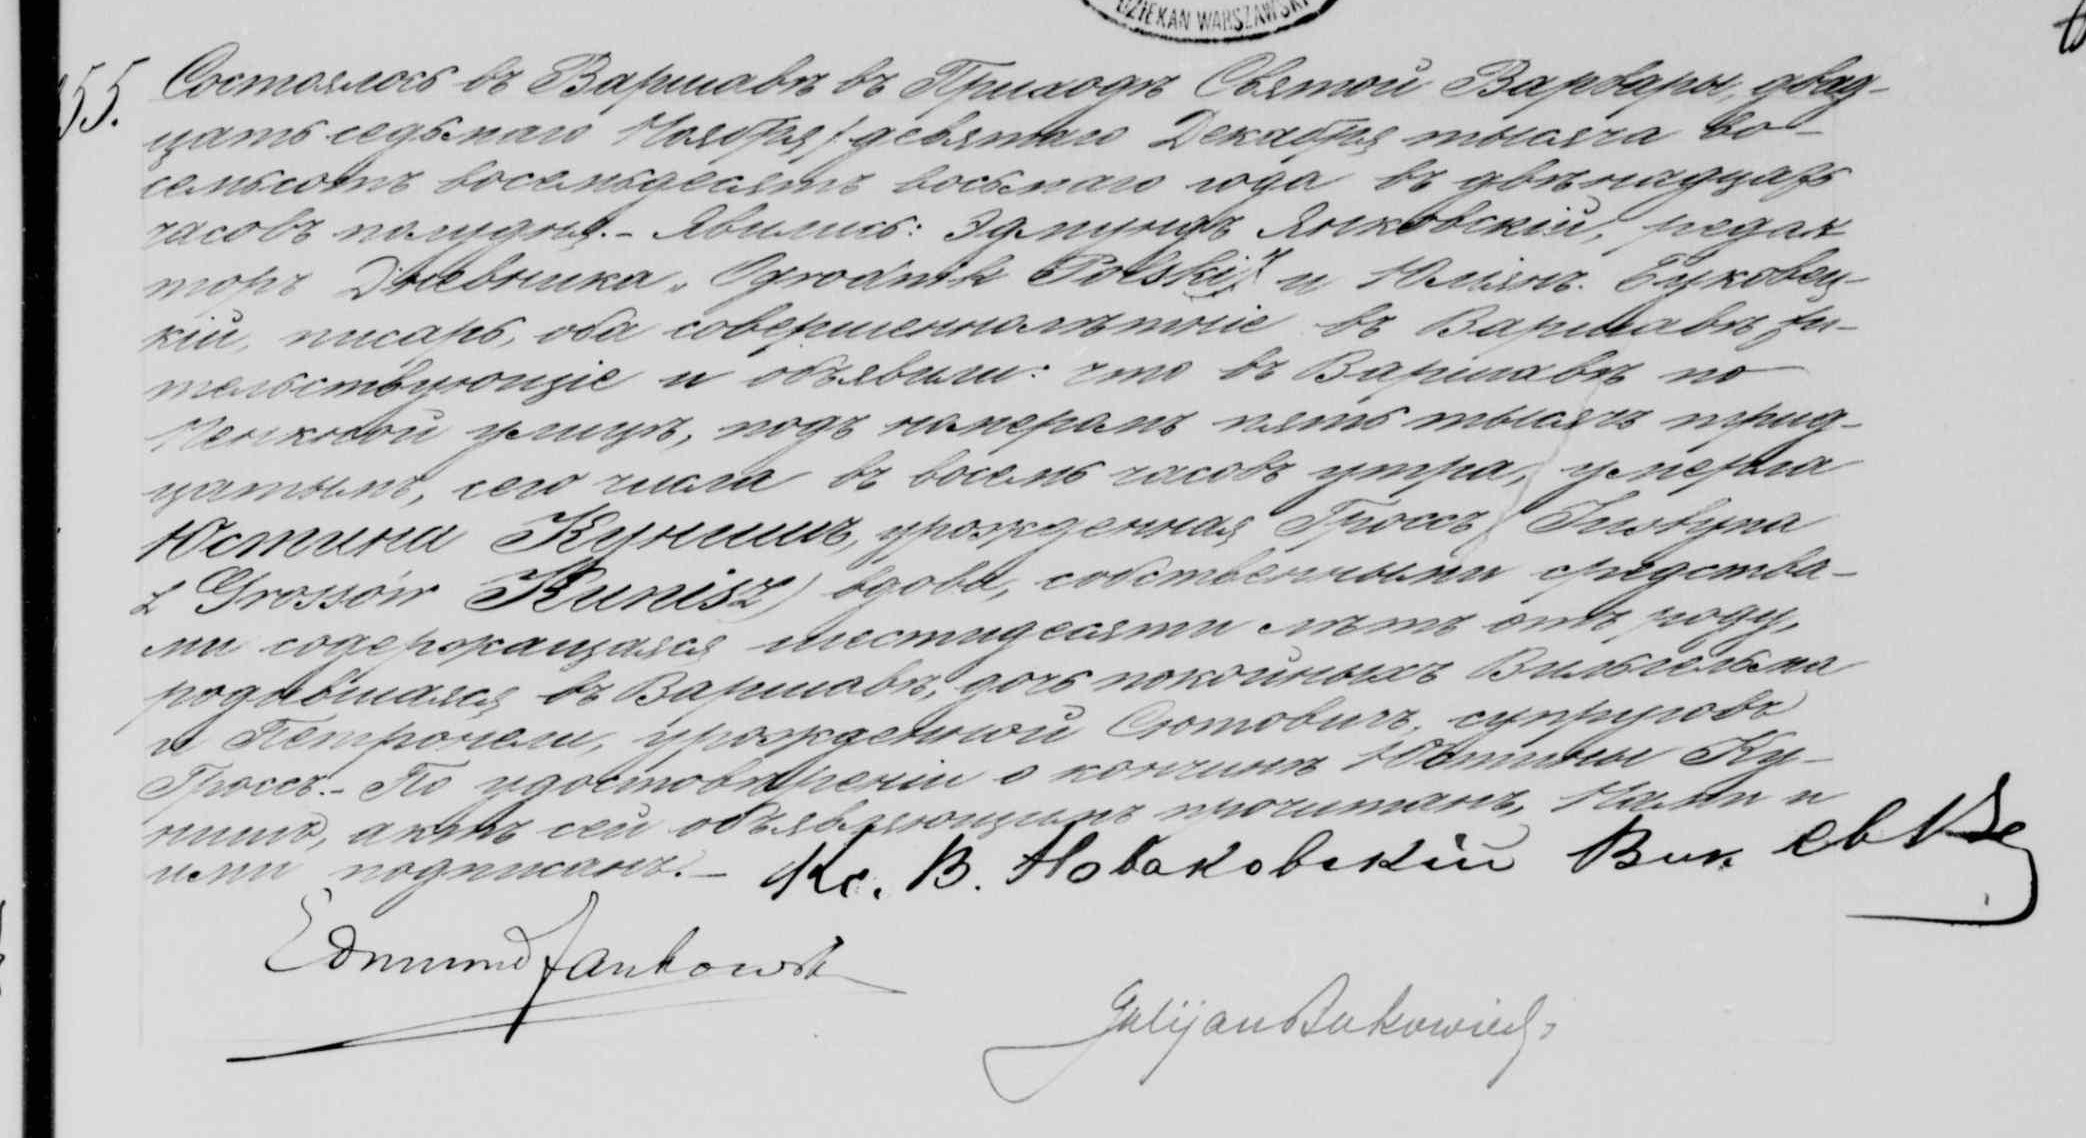 DZIEKAN WARSZAWSKI
55.
Состоялось въ Варшавѣ въ Приходѣ Святой Варвары, двад-
цать седьмаго Ноября / девятаго Декабря тысяча во-
семьсотъ восемьдесятъ восьмаго года въ двѣнадцать
часовъ полудня. - Явились: Эдмундъ Янковскій, редак
торъ Дневника „Ogrodnik Polski" и Юліянъ Буковец-
кій, писарь, оба совершеннолѣтніе въ Варшавѣ жи-
тельствующіе и объявили: что въ Варшавѣ по
Пенкной улицѣ, подъ номеромъ пять тысячъ трид-
цатымъ, сего числа въ восемь часовъ утра, умерла
Юстина Кунишъ, урожденная Гроссъ / Justyna
z Grossów Kunisz) вдова, собственными средства-
ми содержащаяся шестидесяти лѣтъ отъ роду,
родившаяся въ Варшавѣ, дочь покойныхъ Вильгельма
и Петронели, урожденной супруговъ
Гроссъ. - По удостовѣреніи о кончинѣ Юстины Ку-
нишъ, актъ сей объявляющимъ прочитанъ, Нами и
ими подписанъ. - Кс. В. Новаковскій Вик
Edmund Jankowski
Julijan Bukowiecki